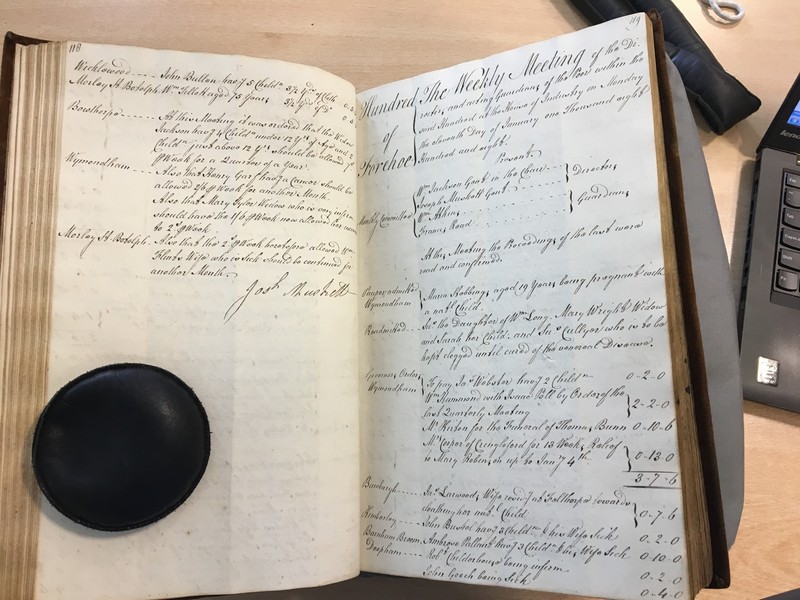 118
Wicklewood John Bullen havg 5 Childn 3½ Yds of Cloth
Morley St Botolph Wm Tills aged 75 Years 3½ Yds of Do
Bowthorpe At this Meeting it was ordered that the Widow
Jackson havg 4 Childn under 12 Yrs of Age and 2
Childn just above 12 Yrs should be allowed
℔ Week for a Quarter of a Year.
Wymondham Also that Henry havg a Cancer should be
allowed 2/6 ℔ Week for another Month.
Also that Mary Tyler Widow who is very infirm
should have the 1/6 ℔ Week now allowed her
to 2s ℔ Week
Morley St Botolph Also that the 2s ℔ Week heretofore allowed Wm
Wife who is Sick should be continued for
another Month.
Josh Muskett
119
Hundred of Forehoe
The Weekly Meeting of the Di-
rectors, and acting Guardians of the Poor within the
said Hundred at the House of Industry on Monday
the eleventh Day of January one Thousand eight
Hundred and eight.
Present.
Wm Jackson Gent in the Chair
Joseph Muskett Gent
Directors
Monthly Committee
Wm Atkins
Francis Road
Guardians
At this Meeting the Proceedings of the last were
read and confirmed.
Pauper admitted
Wymondham Maria Stebbings aged 19 Years being pregnant with
a natl Child.
Readmitted the Daughter of Wm Long, Mary Wright Widow
and Sarah her Child, and Jas Cullyer who is to be
kept clogged until cured of the venereal Disease.
Governor Orders
Wymondham To pay Jas Webster havg 2 Childn 0-2-0
Wm Hammond with Isaac Poll by Order of the
last Quarterly Meeting 2-2-0
Mr Kirton for the Funeral of Thomas Bunn 0-10-6
Mr Coper of Cringleford for 13 Weeks Relief
to Mary Robinson up to Jany 4th 0-13-0
3-7-6
Bawburgh Jas Larwood's Wife towards
cloathing her natl Child 0-7-6
Kimberley John Bushel havg 3 Childn & his Wife Sick 0-2-0
Barnham Broom Ambrose Pallant havg 3 Childn & his Wife Sick 0-10-0
Deopham Robt Childerhouse being infirm 0-2-0
John Gooch being Sick 0-4-0
lenovo